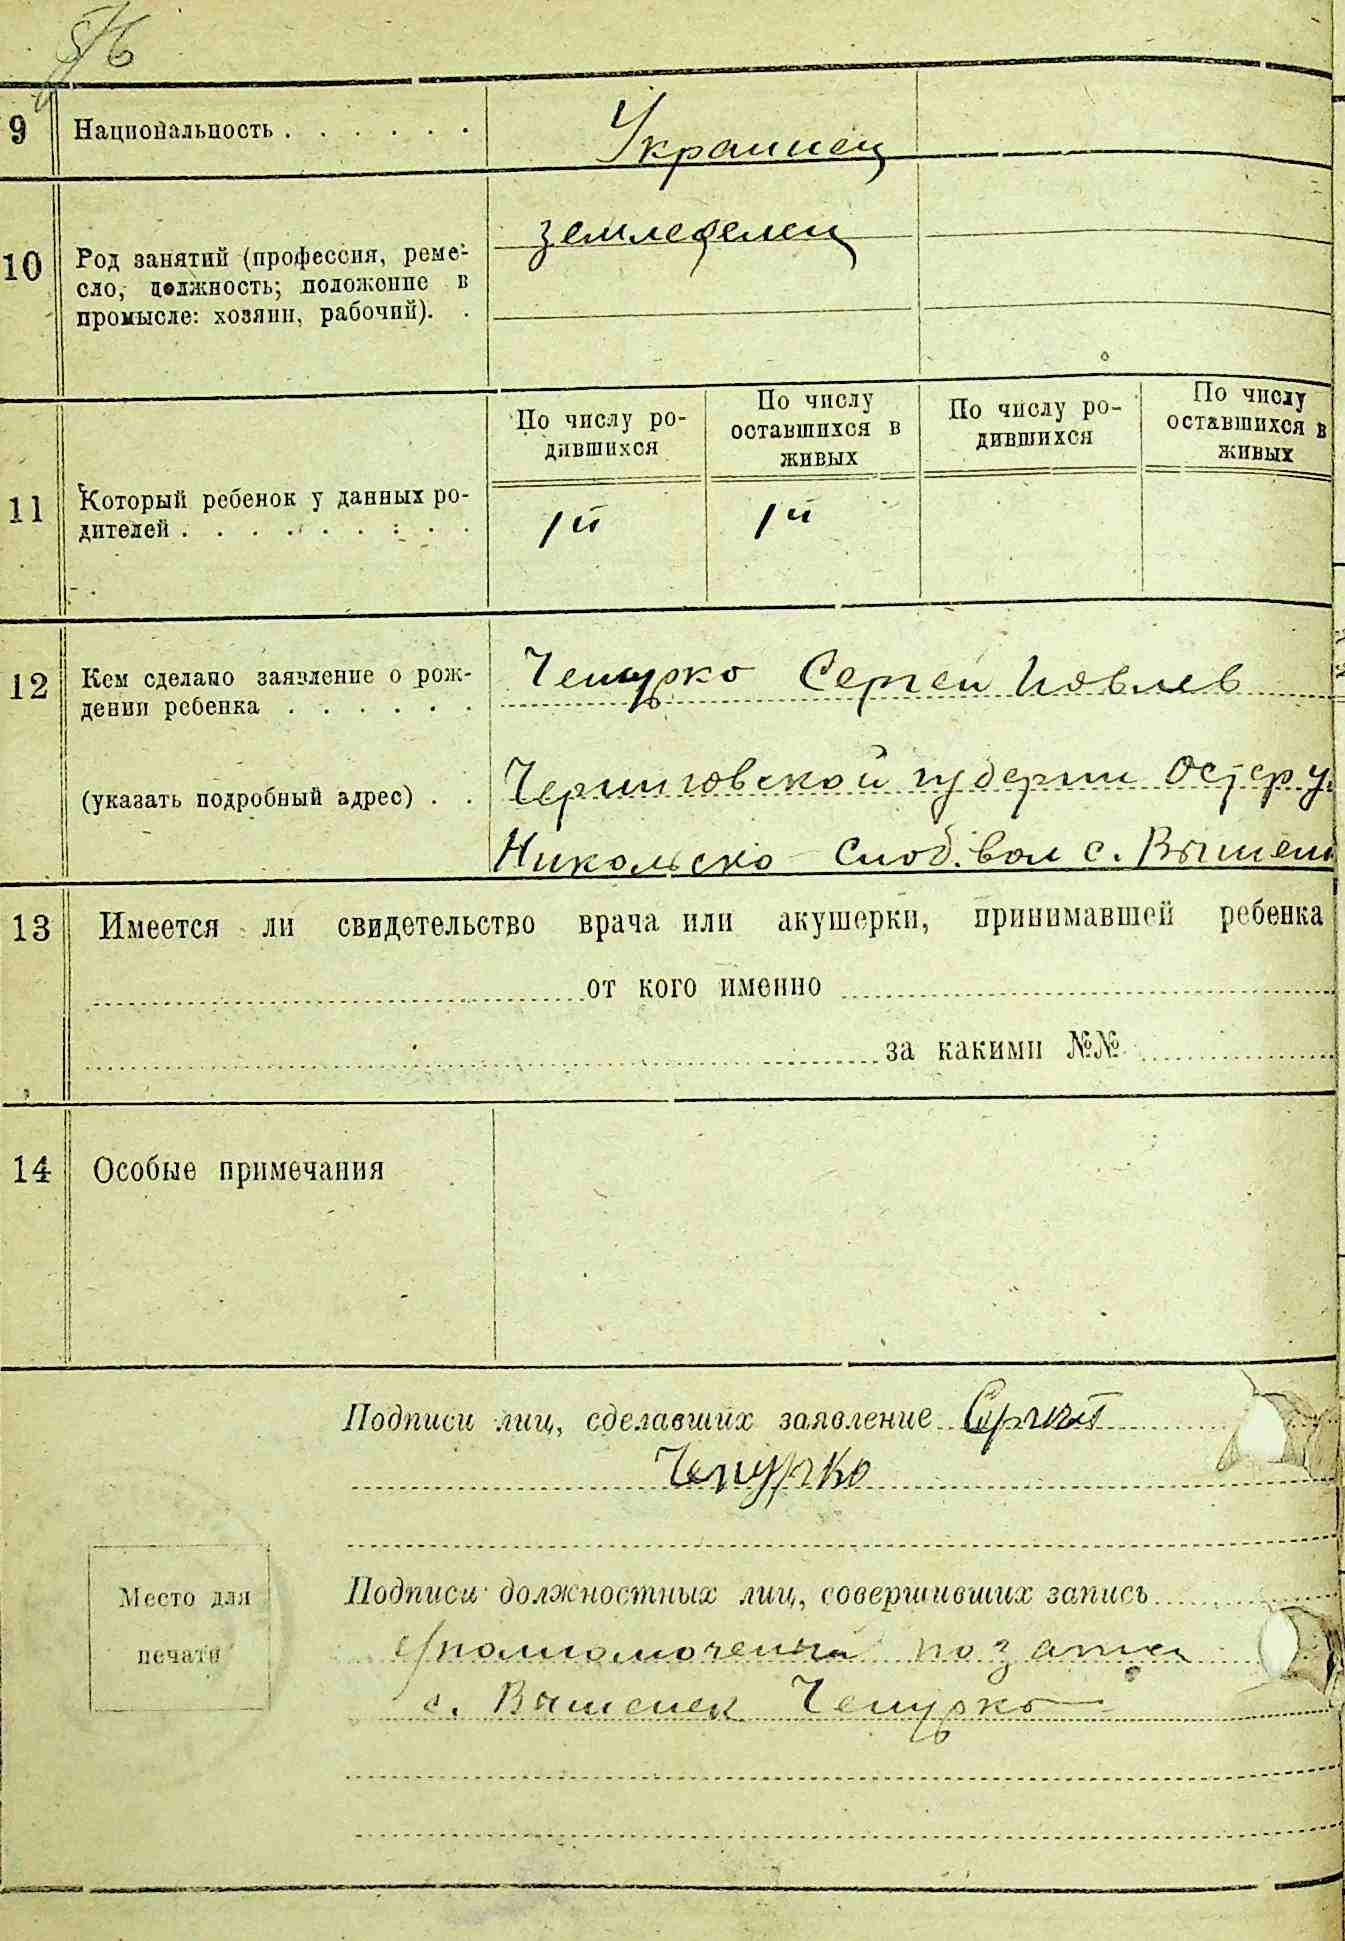 9 Национальность . . . . . . Украинец
10 Род занятий (профессия, реме-
сло, должность; положение в
промысле: хозяин, рабочий). .
земледелец
По числу ро-
дившихся
По числу
оставшихся в
живых
По числу ро-
дившихся
По числу
оставшихся в
живых
11 Который ребенок у данных ро-
дителей . . . . . . . . .
1й 1й
12 Кем сделано заявление о рож-
дении ребенка . . . . . .
Чепурко Сергей Павлев
(указать подробный адрес) . .
Черниговской губернии Остер у.
Никольско Слоб. вол с. Вишен
13 Имеется ли свидетельство врача или акушерки, принимавшей ребенка
от кого именно
за какими №№
14 Особые примечания
Подписи лиц, сделавших заявление Сергей
Чепурко
Место для
печати
Подписи должностных лиц, совершивших запись
с. Вишенек Чепурко